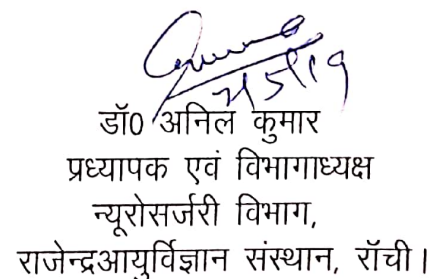 डॉ0 अनिल कुमार
प्रध्यापक एवं विभागाध्यक्ष
न्यूरोसर्जरी विभाग,
राजेन्द्रआयुर्विज्ञान संस्थान, राँची।